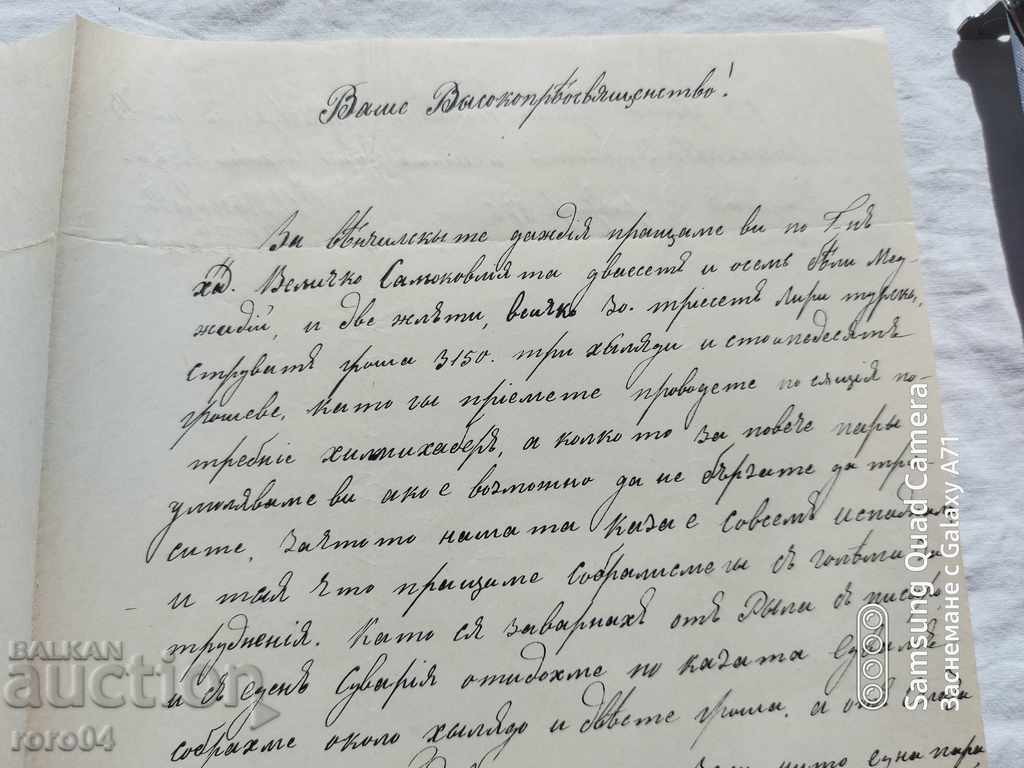 Ваше Высокопрѣосвященство!
За вѣнчилскыте даждія пращаме ви по Г-нъ
Хд. Величко Самоковлията двäесетъ и осемь бѣли Мед-
жидіи, и две жлъти, всичко 30. тріесеть лири турски,
струватъ гроша 3150. три хыляди и сто и педесятъ
грошеве, като гы пріемете проводете по сящія по-
требніе химихаберъ, а колкото за повече пары
умоляваме ви ако е возможно да не бързате да тро-
сите, защото нашата каза е совсемъ
и тая что пращаме собралисмегы съ голѣми за-
трудненія. Като ся заварнахъ отъ Рыла съ писмо
и съ еденъ Суварія отидохме по казата едвамъ
собрахме около хылядо и двѣсте гроша. а отъ
нито една пара
BALKAN
auction
roro04
Samsung Quad Camera
Заснемане с Galaxy A71